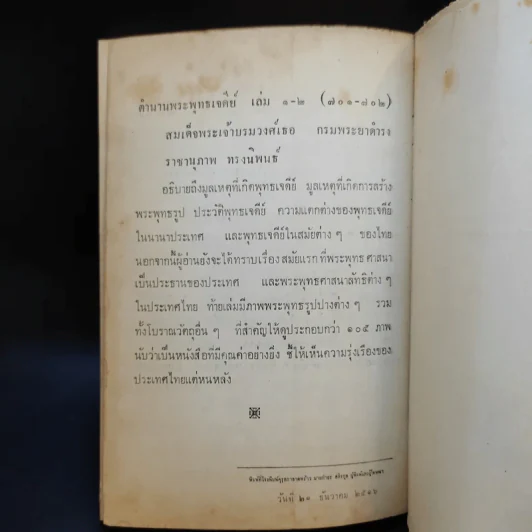 ตำนานพระพุทธเจดีย์ เล่ม ๑-๒ (๗๐๑-๗๐๒)
สมเด็จพระเจ้าบรมวงศ์เธอ กรมพระยาดำรง
ราชานุภาพ ทรงนิพนธ์
อธิบายถึงมูลเหตุที่เกิดพุทธเจดีย์ มูลเหตุที่เกิดการสร้าง
พระพุทธรูป ประวัติพุทธเจดีย์ ความแตกต่างของพุทธเจดีย์
ในนานาประเทศ และพุทธเจดีย์ในสมัยต่าง ๆ ของไทย
นอกจากนี้ผู้อ่านยังจะได้ทราบเรื่อง สมัยแรก ที่พระพุทธ ศาสนา
เป็นประธานของประเทศ และพระพุทธศาสนาลัทธิต่าง ๆ
ในประเทศไทย ท้ายเล่มมีภาพพระพุทธรูปปางต่าง ๆ รวม
ทั้งโบราณวัตถุอื่น ๆ ที่สำคัญให้ดูประกอบกว่า ๑๐๕ ภาพ
นับว่าเป็นหนังสือที่มีคุณค่าอย่างยิ่ง ชี้ให้เห็นความรุ่งเรืองของ
ประเทศไทยแต่หนหลัง
พิมพ์ที่โรงพิมพ์คุรุสภาลาดพร้าว ผู้พิมพ์ผู้โฆษณา
วันที่ ๒๑ ธันวาคม ๒๕๑๖